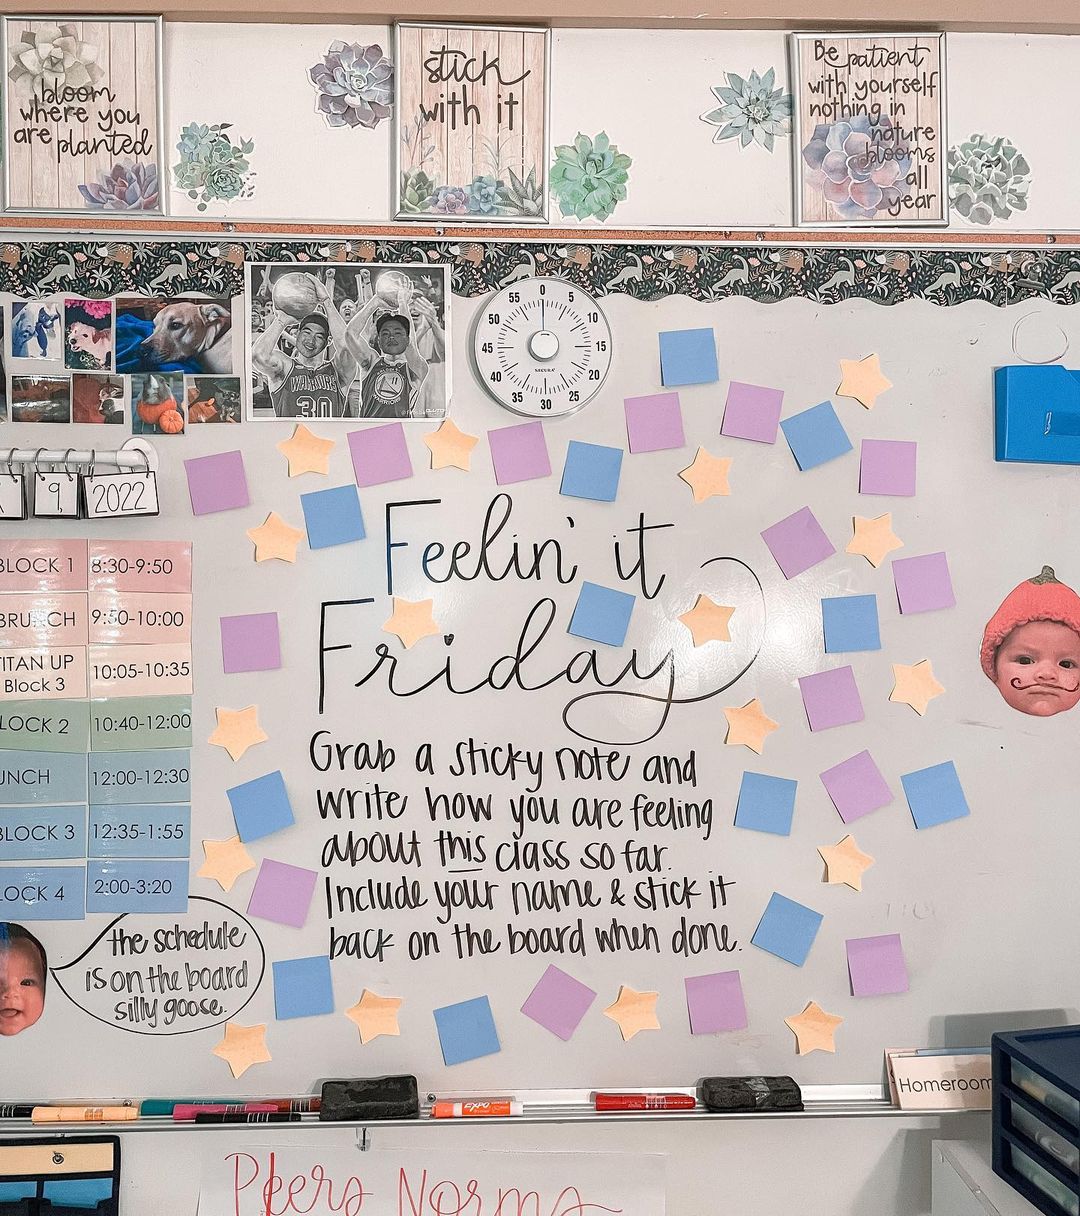 bloom
where you
are planted
stick
with it
Be patient
with yourself
nothing in
nature
blooms
all
year
WARRIORS
30
55 0 5
50 10
45 15
40 20
35 30 25
SECURA
9, 2022
BLOCK 1 8:30-9:50
BRUNCH 9:50-10:00
TITAN UP
Block 3 10:05-10:35
LOCK 2 10:40-12:00
UNCH 12:00-12:30
BLOCK 3 12:35-1:55
LOCK 4 2:00-3:20
the schedule
is on the board
silly goose.
Feelin' it
Friday
Grab a sticky note and
write how you are feeling
about this class so far.
Include your name & stick it
back on the board when done.
EXPO
Homeroom
Norms